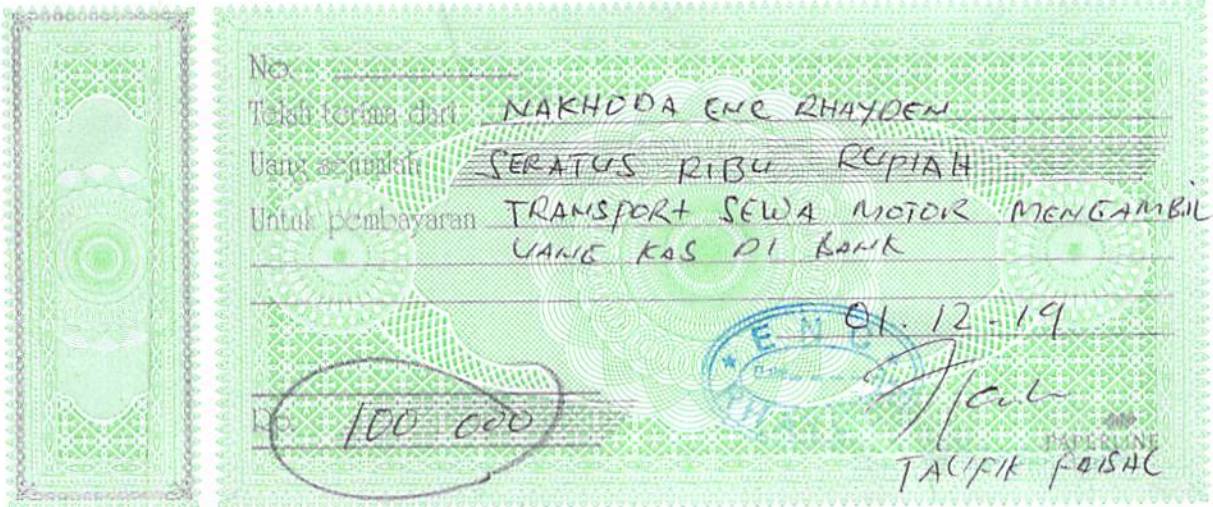 No.
Telah terima dari NAKHODA ENC RHAYDEN
Uang sejumlah SERATUS RIBU RUPIAH
Untuk pembayaran TRANSPORt SEWA MOTOR MENGAMBIL
UANG KAS DI BANK
01.12-19
ENC
Rp. 100 000
PAPERLINE
TAUFIK FAISAL